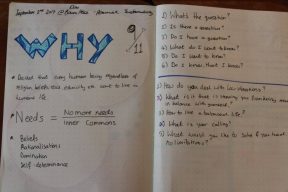 September 2nd 2017 @
WHY
11
Decided that every human being regardless of
religion beliefs race ethnicity etc want to live in
human life
Needs = No more needs
Inner Commons
Beliefs
Rationalisations
Domination
Self determinance
1) What's the question?
1) Is there a question?
3) Do I have a question?
4) What do I want to know?
5) Do I want to know?
6) Do I know that I know?
1) How do you deal with
2) What is it that is keeping you from being more
in balance with yourself?
3) How to live a balanced life?
4) What is your calling?
5) What would you like to solve if you had
no limitations?